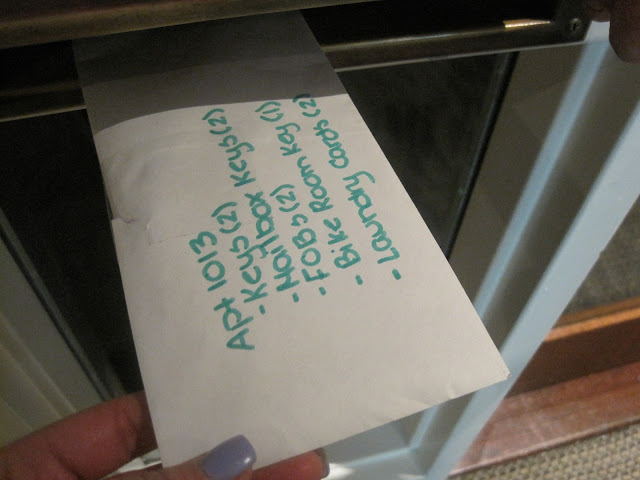 Apt 1013
- Keys (2)
- Mailbox Keys (2)
- FOBs (2)
- Bike Room Key (1)
- Laundry cards (2)